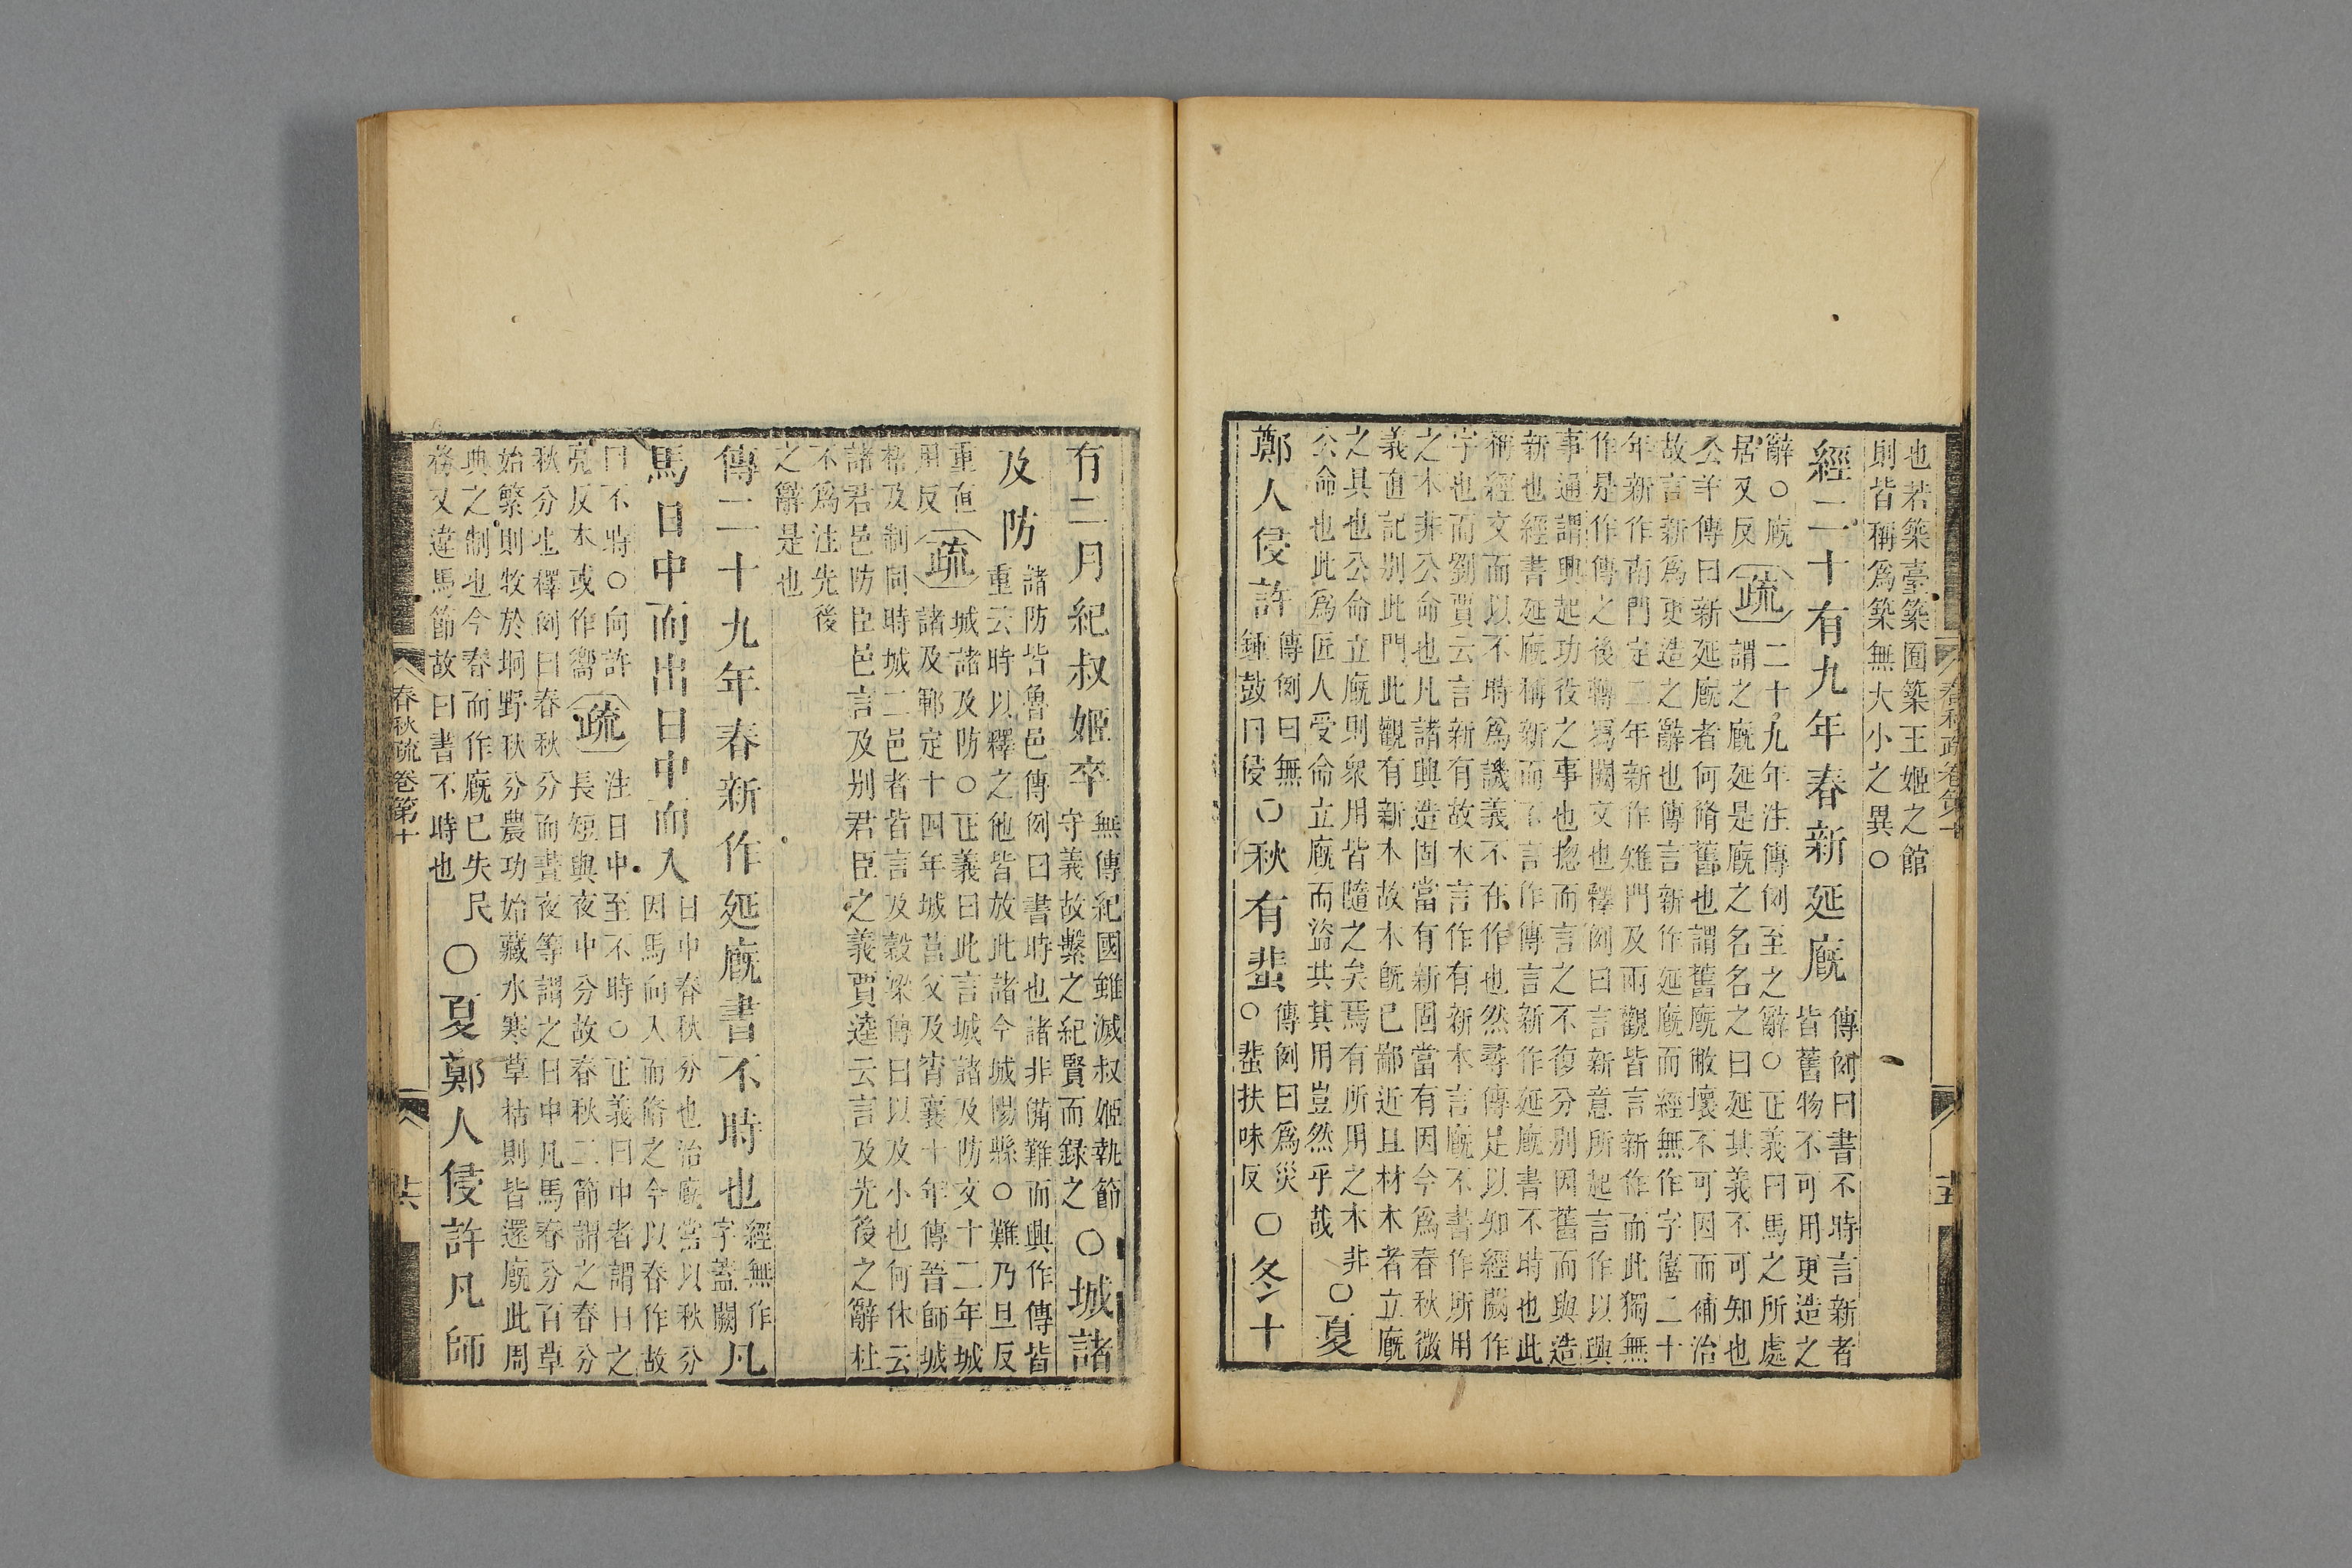 也若築臺築囿築王姬之館
則皆稱爲築無大小之異○
經二十有九年春新延廐
傳例曰書不時言新者
皆舊物不可用更造之
辭○廐
居又反
疏
二十九年注傳例至之辭○正義曰馬之所處
謂之廐延是廐之名名之曰延其義不可知也
公羊傳曰新延廐者何脩舊也謂舊廐敝壞不可因而補治
故言新爲更造之辭也傳言新作延廐而經無作字僖二十
年新作南門定二年新作雉門及兩觀皆言新作而此獨無
作是作傳之後轉寫闕文也釋例曰言新意所起言作以興
事通謂興起功役之事也揔而言之不復分別因舊而與造
新也經書延廐稱新而不言作傳言新作延廐書不時也此
稱經文而以不時爲譏義不在作也然尋傳足以知經闕作
字也而劉賈云言新有故木言作有新木言廐不書作所用
之木非公命也凡諸興造固當有新固當有因今爲春秋微
義直記別此門此觀有新木故木旣已鄙近且材木者立廐
之具也公命立廐則衆用皆隨之矣焉有所用之木非
公命也此爲匠人受命立廐而盜共其用豈然乎哉
○夏
鄭人侵許
傳例曰無
鍾鼓曰侵
○秋有蜚
傳例曰爲災
○蜚扶味反
○冬十
春秋疏卷第十
十五
有二月紀叔姬卒
無傳紀國雖滅叔姬執節
守義故繫之紀賢而錄之
○城諸
及防
諸防皆魯邑傳例曰書時也諸非備難而興作傳皆
重云時以釋之他皆放此諸今城陽縣○難乃旦反
重直
用反
疏
城諸及防○正義曰此言城諸及防文十二年城
諸及鄆定十四年城莒父及霄襄十年傳晉師城
梧及制同時城二邑者皆言及穀梁傳曰以及小也何休云
諸君邑防臣邑言及别君臣之義賈逵云言及先後之辭杜
不爲注先後
之辭是也
傳二十九年春新作延廐書不時也
經無作
字蓋闕
凡
馬日中而出日中而入
日中春秋分也治廐當以秋分
因馬向入而脩之今以春作故
曰不時○向許
亮反本或作嚮
疏
注日中至不時○正義曰中者謂日之
長短與夜中分故春秋二節謂之春分
秋分也釋例曰春秋分而晝夜等謂之日中凡馬春分百草
始繁則牧於坰野秋分農功始藏水寒草枯則皆還廐此周
典之制也今春而作廐已失民
務又違馬節故曰書不時也
○夏鄭人侵許凡師
春秋疏卷第十
十六